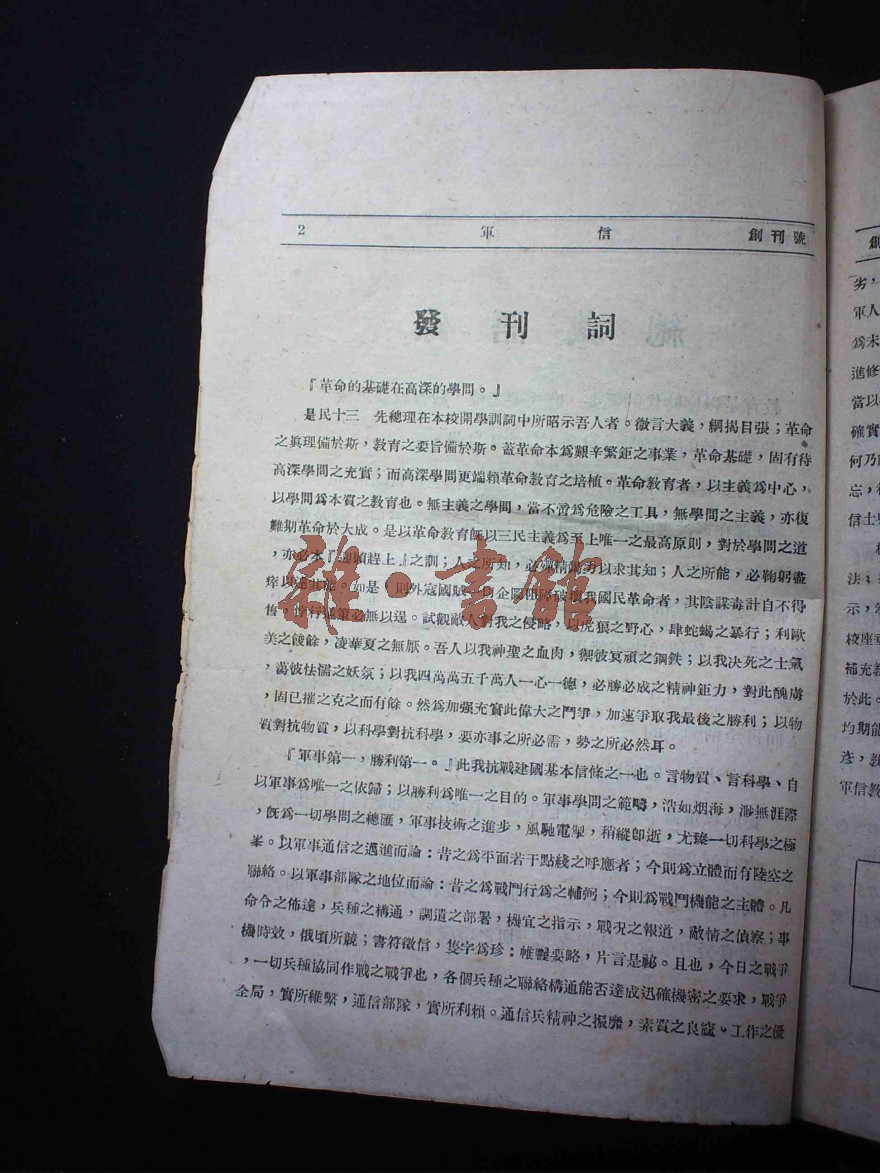 2 軍 信 創刊號
發 刊 詞
『革命的基礎在高深的學問。』
是民十三 先總理在本校開學訓詞中所昭示吾人者。微言大義,綱揭目張;革命
之眞理備於斯,教育之要旨備於斯。蓋革命本爲艱辛繁鉅之事業,革命基礎,固有待
高深學問之充實;而高深學問更端賴革命教育之培植。革命教育者,以主義爲中心,
以學問爲本質之教育也。無主義之學問,當不啻爲危險之工具,無學問之主義,亦復
難期革命於大成。是以革命教育旣以三民主義爲至上唯一之最高原則,對於學問之道
,亦必本『迎頭趕上』之訓;人之所知,必殫精竭力以求其知;人之所能,必鞠躬盡
瘁以達其能。如是,則外寇國賊一切企圖阻障破壞我國民革命者,其陰謀毒計自不得
售,必無以逞。試觀敵人對我之侵略,以虎狼之野心,肆蛇蝎之暴行;利歐
美之餕餘,凌華夏之無厭。吾人以我神聖之血肉,禦彼冥頑之鋼鉄;以我决死之士氣
,蕩彼怯懦之妖氛;以我四萬萬五千萬人一心一德,必勝必成之精神鉅力,對此醜虜
,固已摧之克之而有餘。然爲加强充實此偉大之鬥爭,加速爭取我最後之勝利;以物
質對抗物質,以科學對抗科學,要亦事之所必需,勢之所必然耳。
『軍事第一,勝利第一。』此我抗戰建國基本信條之一也。言物質、言科學、自
以軍事爲唯一之依歸;以勝利爲唯一之目的。軍事學問之範疇,浩如烟海,渺無涯際
,旣爲一切學問之總匯,軍事技術之進步,風馳電掣,稍縱卽逝,尤臻一切科學之極
峯。以軍事通信之邁進而論:昔之爲平面若干點綫之呼應者;今則爲立體而有陸空之
聯絡。以軍事部隊之地位而論:昔之爲戰鬥行爲之輔弼;今則爲戰鬥機能之主體。凡
命令之佈達,兵種之構通,調遣之部署,機宜之指示,戰况之報道,敵情之偵察;事
機時效,俄頃所競;書符徵信,隻字爲珍:帷幄要略,片言是祕。且也,今日之戰爭
,一切兵種協同作戰之戰爭也,各個兵種之聯絡構通能否達成迅確機密之要求,戰爭
全局,實所維繫,通信部隊,實所利賴。通信兵精神之振靡,素質之良窳、工作之優
創
劣,
軍人
爲未
進修
當以
確實
何乃
忘,
信士
法、
示,
校座
補充教
於此。
均期能
彥,教
軍信教
雜·書館